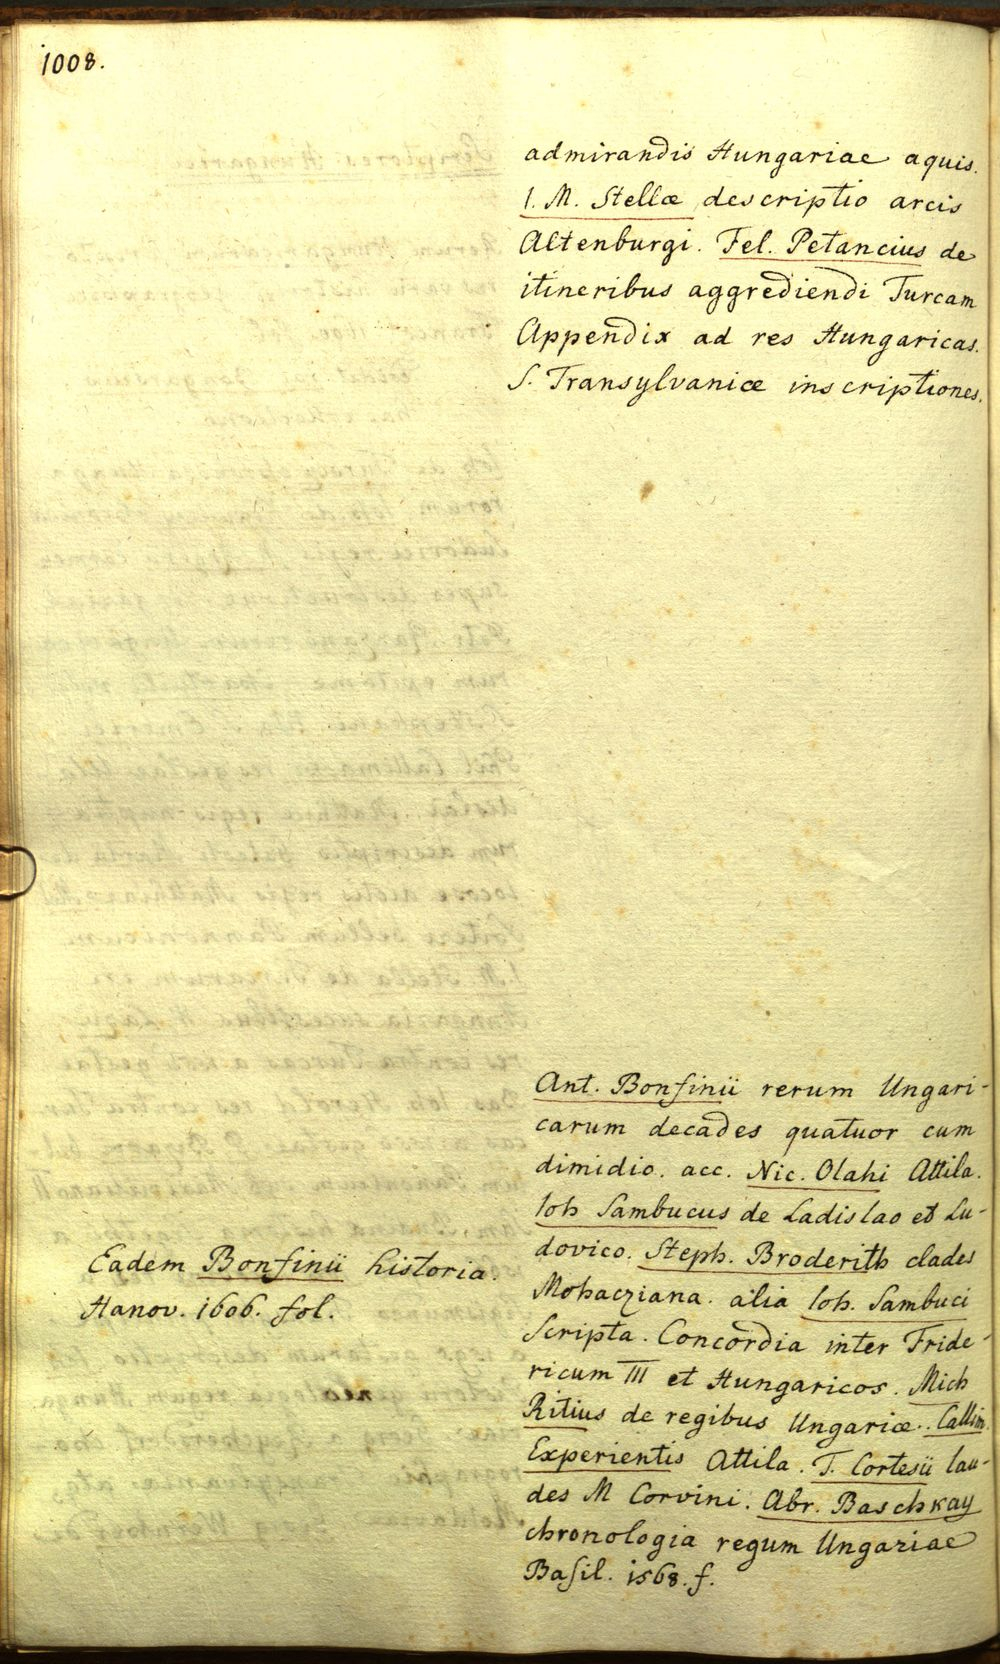 1008.
admirandis Hungariae aquis.
I. M. Stellæ descriptio arcis
Altenburgi. Fel. Petancius de
itineribus aggrediendi Turcam
Appendix ad res Hungaricas.
S. Transylvanicæ inscriptiones.
Ant. Bonfinii rerum Ungari-
carum decades quatuor cum
dimidio. acc. Nic. Olahi Attila.
Ioh Sambucus de Ladislao et Lu-
dovico. Steph. Broderith clades
Mohacziana. alia Ioh. Sambuci
Scripta. Concordia inter Fride-
ricum III et Hungaricos. Mich
Ritius de regibus Ungariæ. Callim.
Experientis Attila. T. Cortesii lau-
des M Corvini. Abr. Baschkay
chronologia regum Ungariae
Basil. 1568. f.
Eadem Bonfinii historia.
Hanov. 1606. fol.